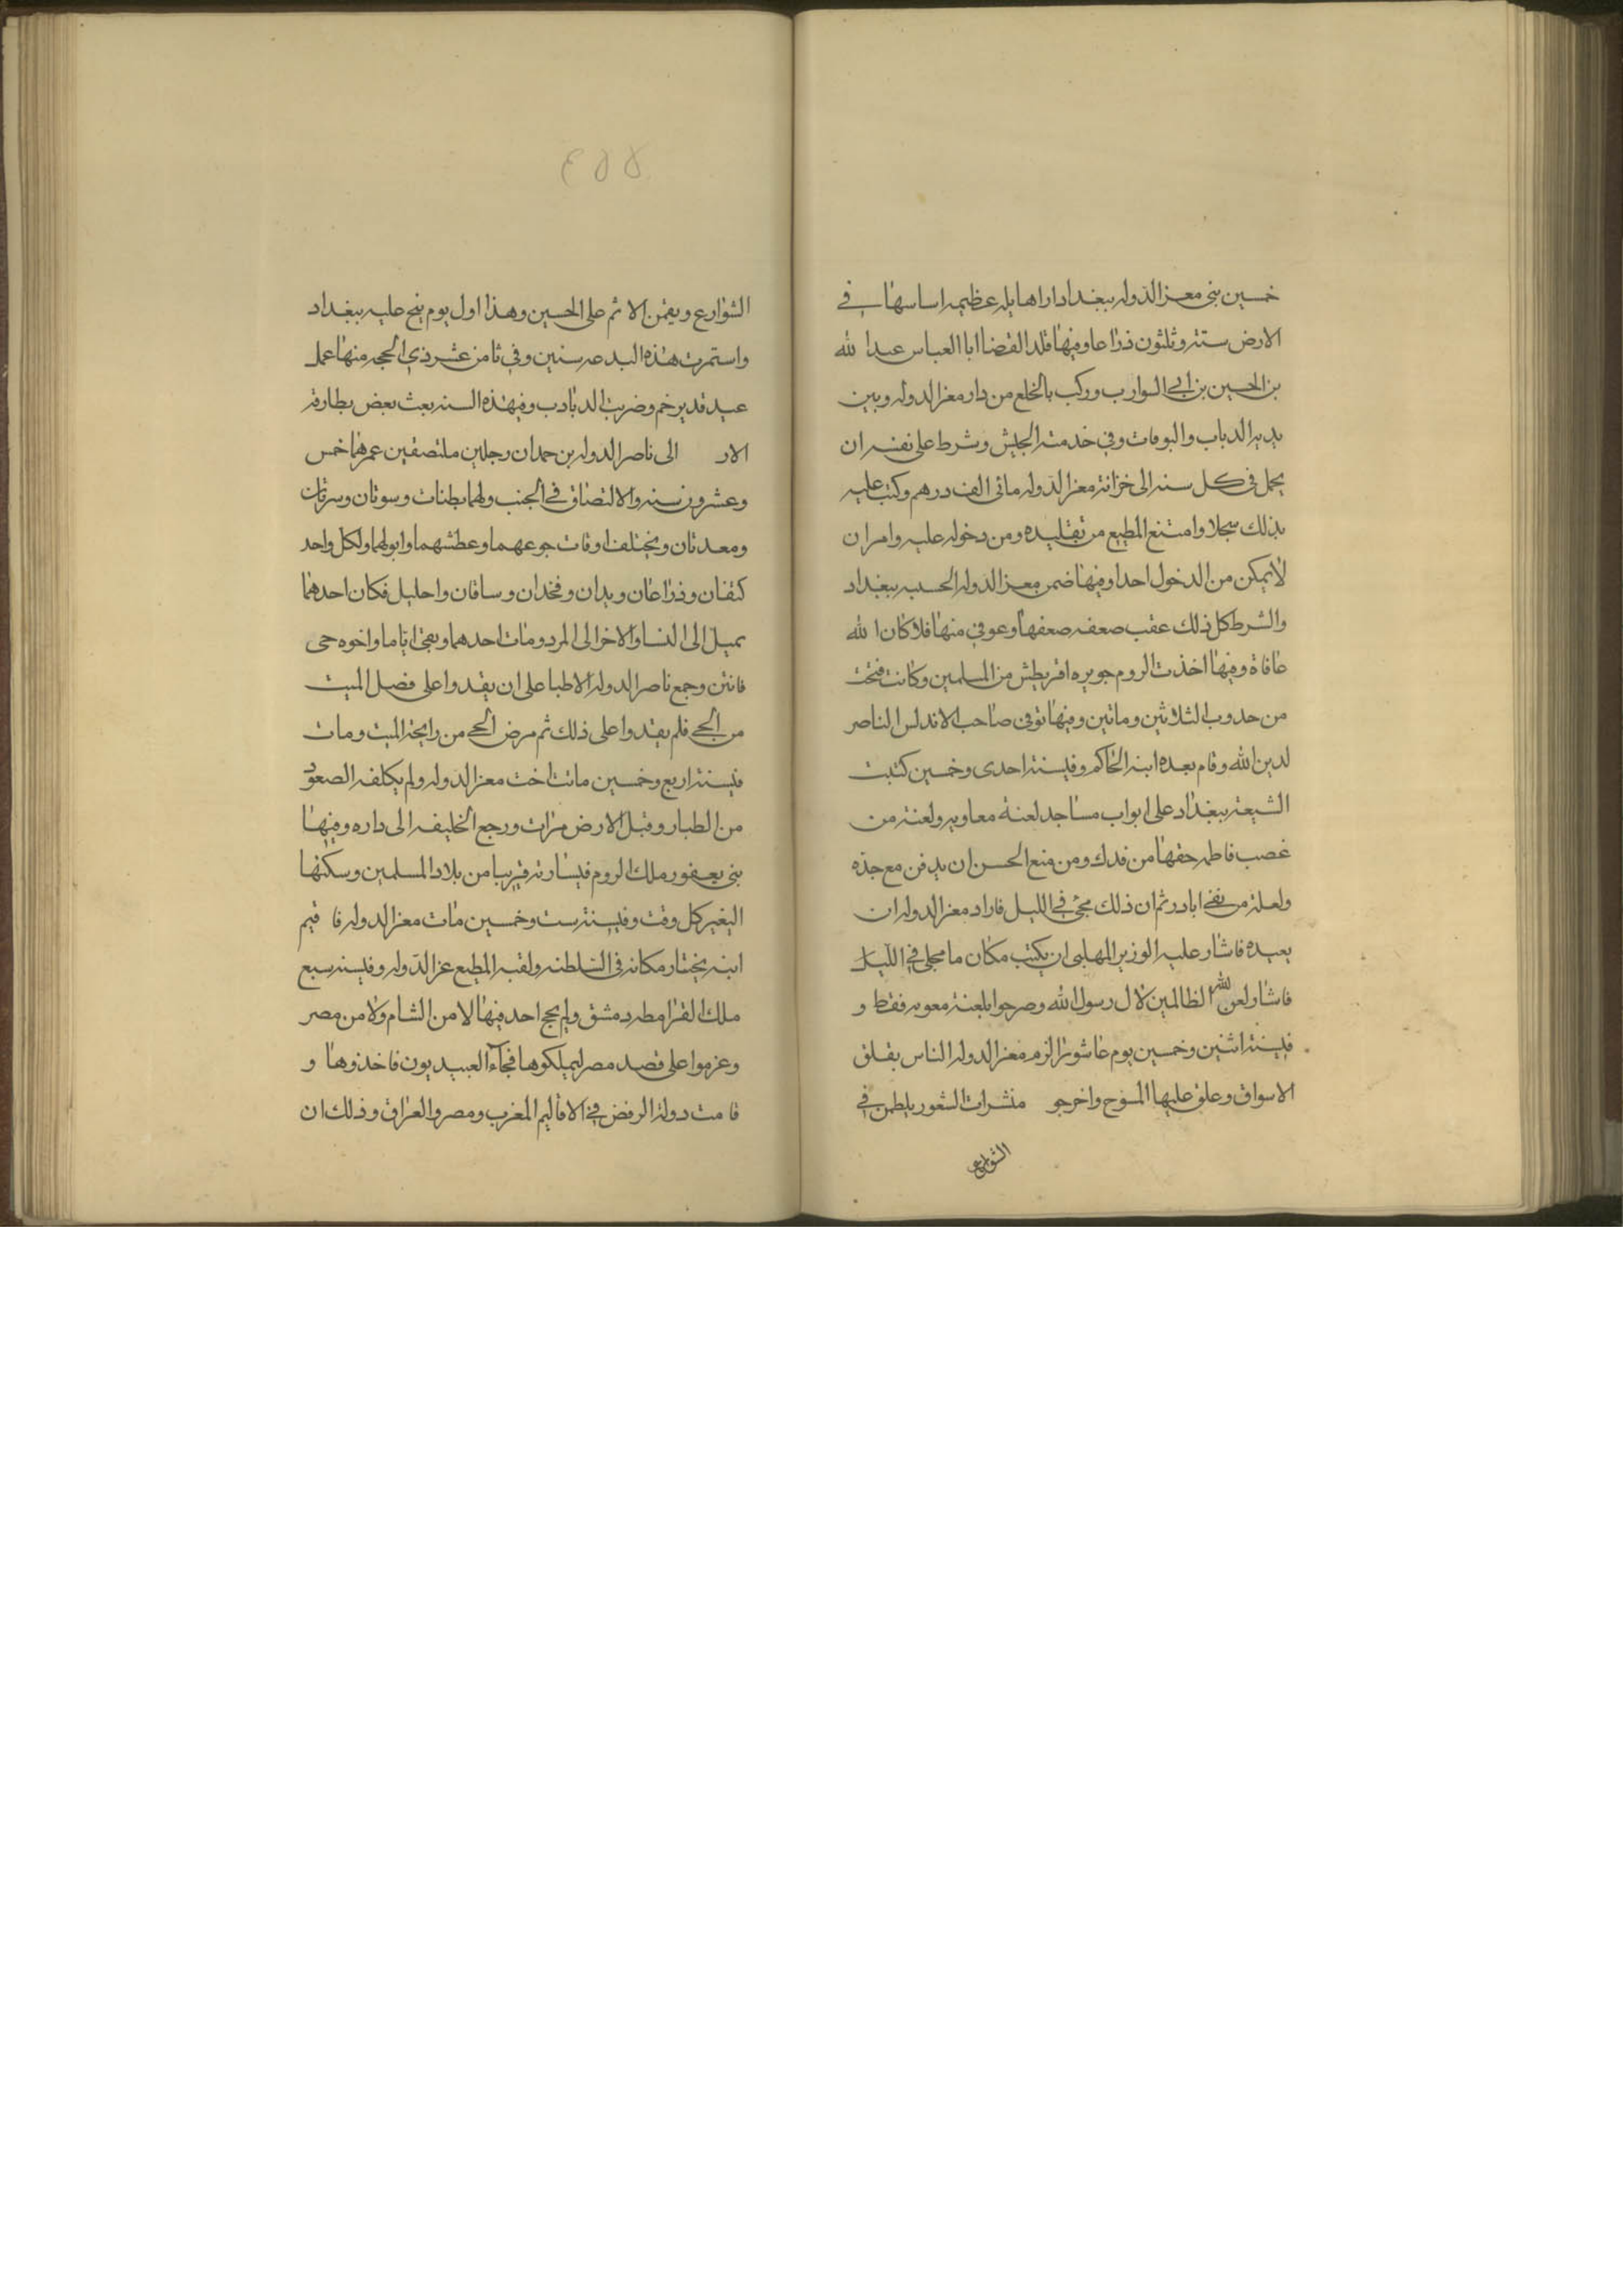 خمسين بنى معز الدوله ببغداد دارا هايله عظيمه اساسها في
الارض ستة وثلثون ذراعا وفيها قلد القضا ابا العباس عبد الله
بن الحسين بن ابي الشوارب وركب بالخلع من دار معز الدوله وبين
يديه الدباب والبوقات وفي خدمته الجيش وشرط على نفسه ان
يحمل في كل سنه الى خزانة معز الدوله مائى الف درهم وكتب عليه
بذلك سجلا وامتنع المطيع من تقليده ومن دخوله عليه وامر ان
لا يمكن من الدخول احدا وفيها ضمن معز الدوله الحسبه ببغداد
والشرط كل ذلك عقب ضعفه ضعفها وعوفي منها فلا كان الله
عافاة وفيها اخذت الروم جويره اقريطش من المسلمين وكانت فتحت
من حدوب الثلاثين وماتين وفيها توفى صاحب الاندلس الناصر
لدين الله وقام بعده ابنه الحاكم وفي سنة احدى وخمسين كتبت
الشيعة ببغداد على ابواب مساجد لعنة معاويه ولعنة من
غصب فاطمه حقها من فدك ومن منع الحسن ان يدفن مع جده
ولعنة من نفى ابا در ثم ان ذلك محى في الليل فاراد معز الدوله ان
يعيده فاشار عليه الوزير المهلبى ان يكتب مكان ما محى في الليل
فاشار لعن الله الظالمين لال رسول الله وصرحوا بلعنة معويه فقط و
في سنة اثنين وخمسين يوم عاشورا الزم معز الدوله الناس بقلق
الاسواق وعلق عليها المسوح واخرجو منشرات الشعور يلطمن في
الشوارع
٤٥٥
الشوارع ويقمن الاثم على الحسين وهذا اول يوم ينح عليه ببغداد
واستمرت هذه البدعه سنين وفي ثامن عشر ذي الحجه منها عمل
عيد قدير خم وضربت الدبادب وفي هذه السنه بعث بعض بطارقة
الار الى ناصر الدوله بن حمدان رجلين ملتصقين عمرهما خمس
وعشرون سنه والالتصاق في الجنب ولهما بطنات وسوتان وسرتان
ومعدتان ويختلف اوقات جوعهما وعطشهما وابولهما ولكل واحد
كتفان وذراعان ويدان وفخدان وساقان واحليل فكان احدهما
يميل الى النسا والاخر الى المرد ومات احدهما وبقى اياما واخوه حى
فانتن وجمع ناصر الدوله الاطبا على ان يقدوا على فصل الميت
من الحي فلم يقدوا على ذلك ثم مرض الحي من رايحة الميت ومات
في سنة اربع وخمسين ماتت اخت معز الدوله ولم يكلفه الصعود
من الطيار وقبل الارض مرات ورجع الخليفه الى داره وفيها
بنى يعفور ملك الروم قيسارته قريبا من بلاد المسلمين وسكنها
اليغير كل وقت وفي سنة ست وخمسين مات معز الدوله فا قيم
ابنه بختيار مكانه في السلطنه ولقبه المطيع عز الدوله وفي سنه سبع
ملك القرامطه دمشق ولم يحج احد فيها لا من الشام ولا من مصر
وعزموا على قصد مصر ليملكوها فجآء العبيديون فاخذوها و
قامت دولة الرفض في الاقاليم المغرب ومصر والعراق وذلك ان